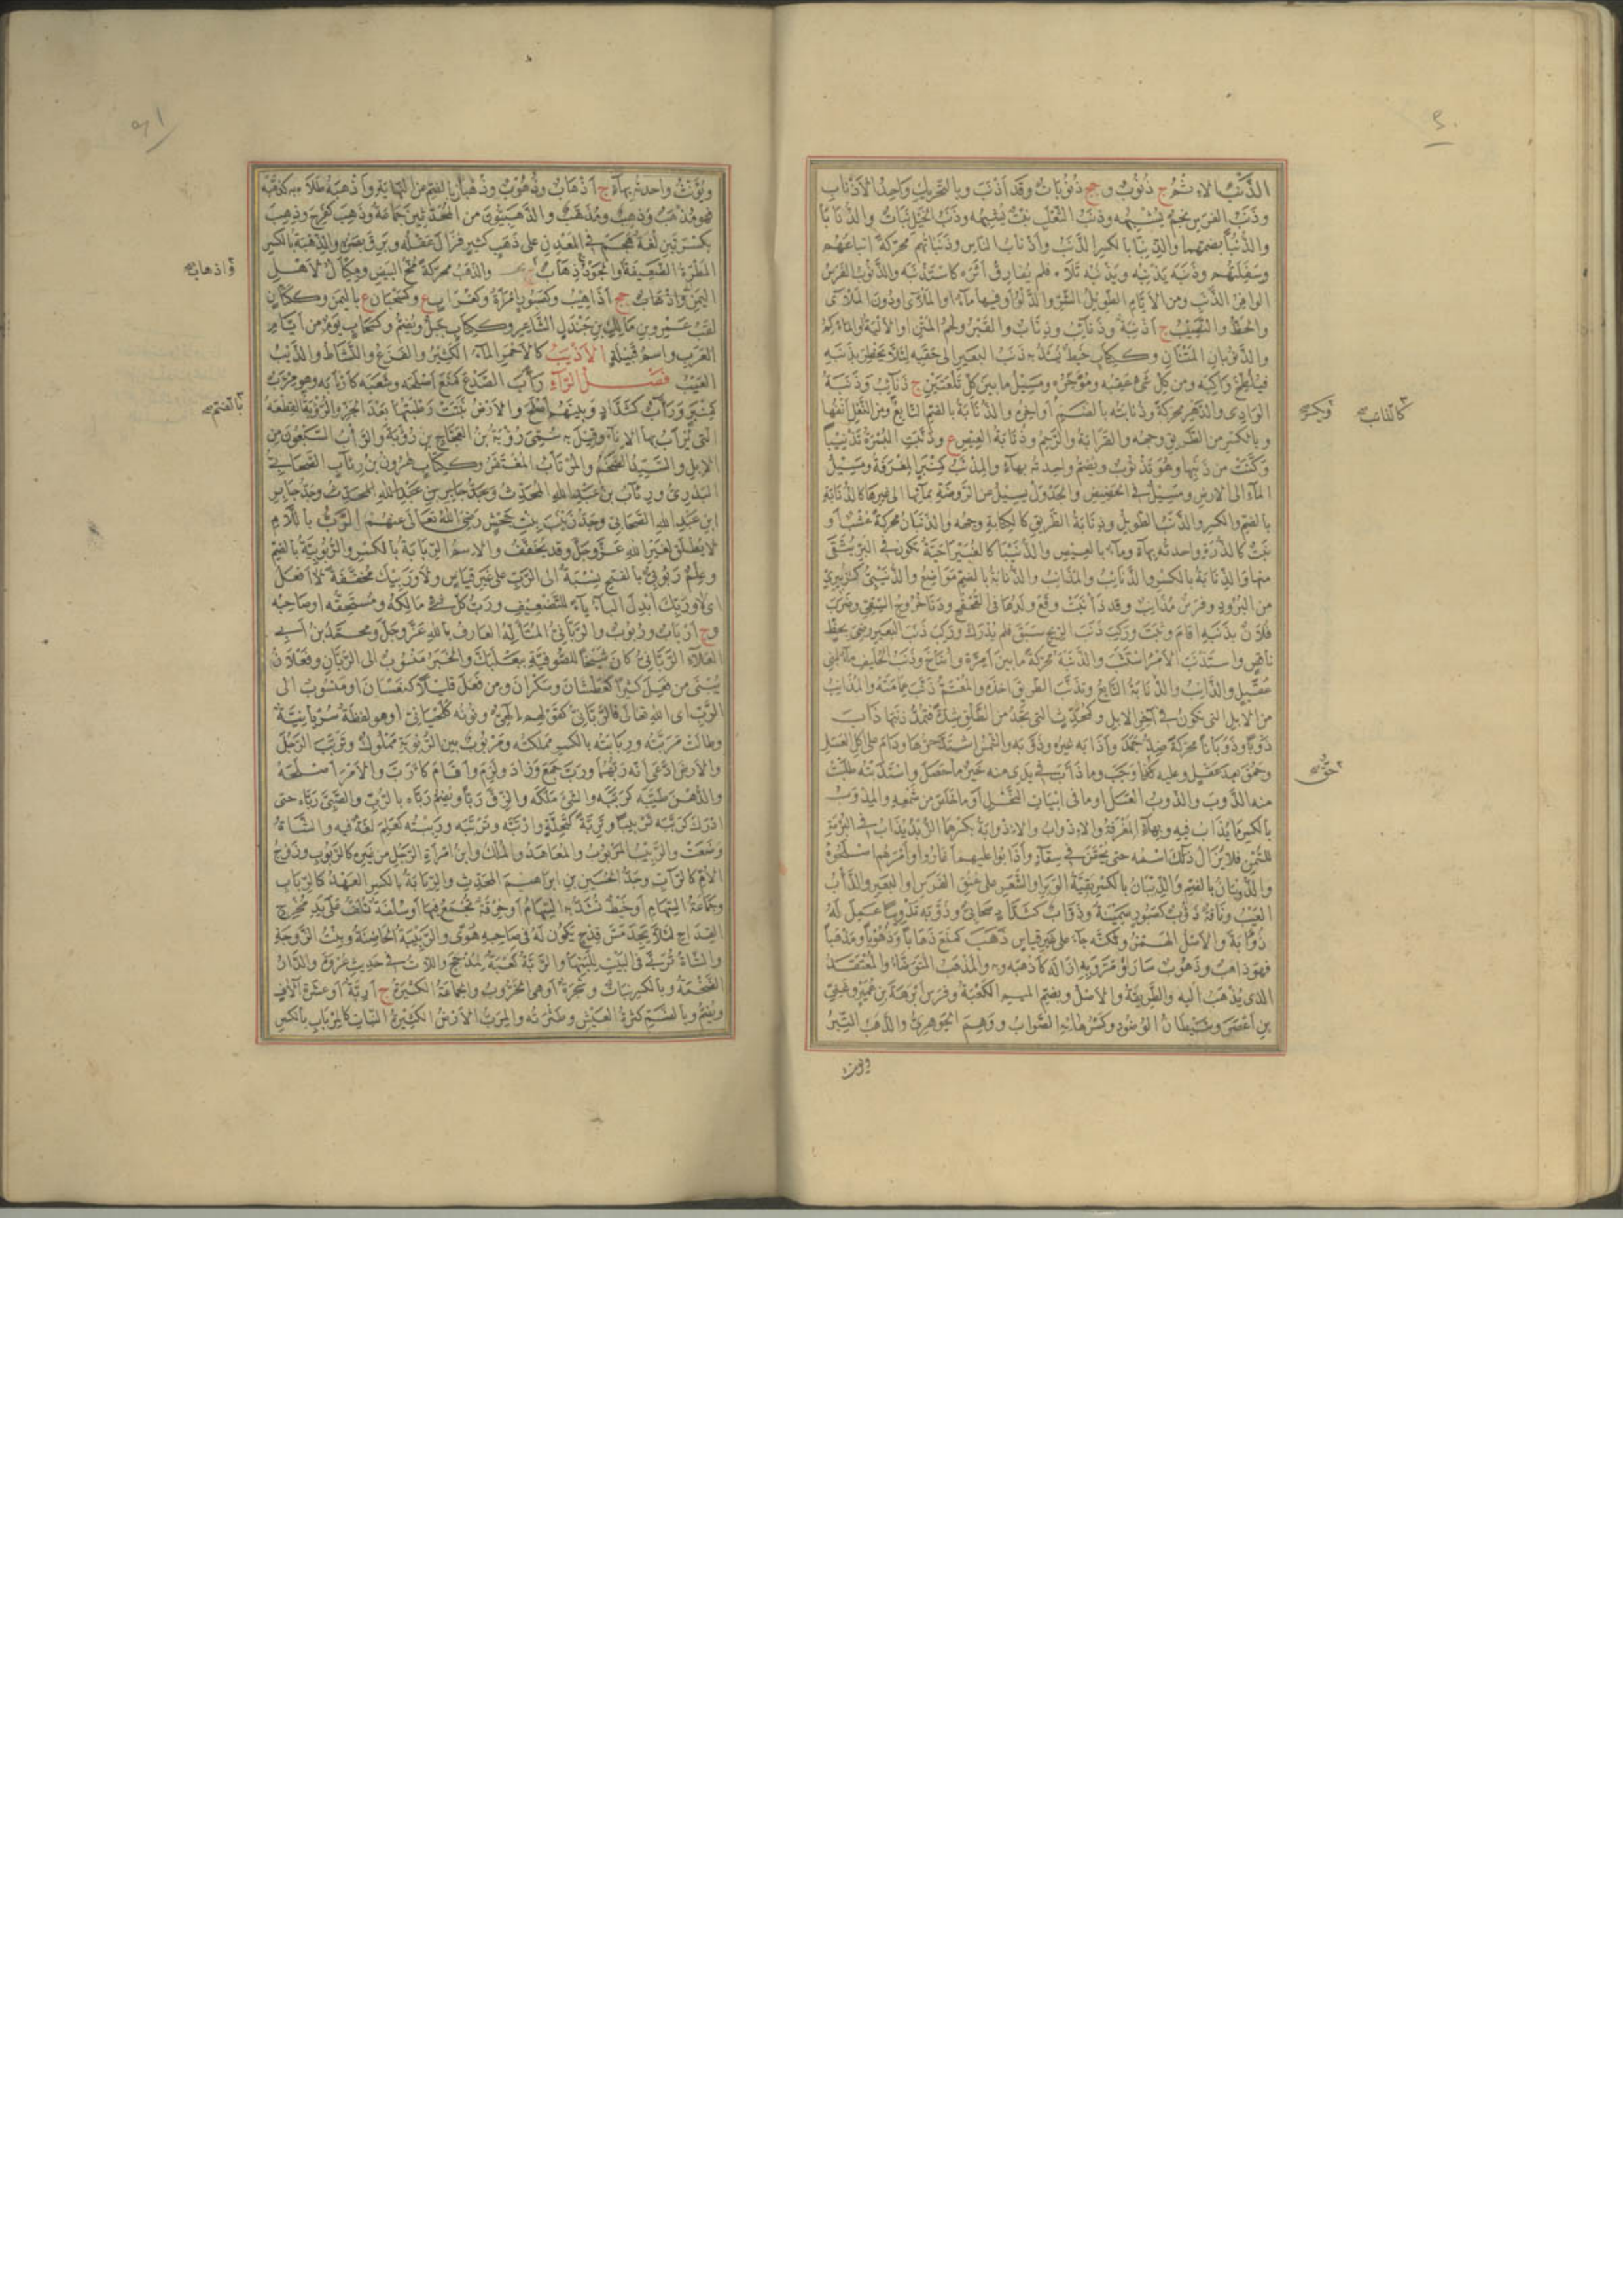 الذَّنْبُ الاِثْمُ ج ذُنُوبٌ و جج ذُنُوبَاتٌ وقد اَذْنَبَ وبالتحريك وَاحِدُ الاَذْنَابِ
وذَنَبُ الفَرَسِ نَجْمٌ يُشْبِهُه وذَنَبُ الثَعْلَبِ نَبْتٌ يُشْبِهُه وذَنَبُ الخَيْلِ نَبَاتٌ والذُّنَابَا
والذُّنُبَّا بضمهما والذِّنِبَّا بالكسر الذَّنَبُ واَذْنَابُ الناسِ وذَنَبَاتُهُم محرّكةً اتباعُهُم
وسَفِلَتُهُم وذَنَبَه يَذْنِبُه ويَذْنُبُه تَلَاه فلم يُفَارِق اَثَرَه كاسْتَذْنَبَه والذَّنُوبُ الفَرَسُ
الوافِرُ الذَّنَبِ ومن الاَيَّامِ الطَوِيلُ الشَّرِّ والدَّلْوُ او فيها مآءٌ او المَلْأَى او دُونَ المَلْأَى
والحَظُّ والنَصِيبُ ج اَذْنِبَةٌ وذَنَائِبُ وذِنَابٌ والقَبْرُ ولَحْمُ المَتْنِ او الاَلْيَةُ او المآكِمُ
والذَّنُوبَانِ المَتْنَانِ وككِتَابٍ خَيْطٌ يُشَدُّ به ذَنَبُ البَعِيرِ الى حَقَبِه لِئَلَّا يَخْطِرَ بِذَنَبِه
فيُلَطِّخَ رَاكِبَه ومن كل شَىْءٍ عَقِبُه ومُؤَخَّرُه ومَسِيلُ ما بين كل تَلْعَتَيْنِ ج ذَنَائِبُ وذَنَبَةُ
الوَادِى والدَّهْرِ محرّكةً وذُنَابَتُه بالضَّمِّ اَوَاخِرُه والذُّنَابَةُ بالضم التَابِعُ ومن النَعْلِ اَنْفُهَا
وبالكَسْرِ من الطَّرِيقِ وجهُه والقَرَابَةُ والرَّحِمُ وذُنَابَةُ العِيصِ ع وذَنَّبَتِ البُسْرَةُ تَذْنِيبًا
وَكَّتَتْ من ذَنَبِهَا وهُوَ تَذْنُوبٌ ويُضَمُّ واحدتُه بهآءٍ والمِذْنَبُ كمِنْبَرٍ المِغْرَفَةُ ومَسِيلُ
المآءِ الى الارضِ ومَسِيلٌ فى الحَضِيضِ والجَدْوَلُ يَسِيلُ من الرَوضَةِ بمآئها الى غيرها كالذُّنَابَةِ
بالضم والكسر والذَّنَبُ الطَويلُ وذِنَابَةُ الطَرِيقِ كالكِتَابَةِ وجهُه والذَّنَبَانُ محركةً عُشْبٌ او
نَبْتٌ كالذُّرَةِ واحدتُه بهآءٍ ومآءٌ بالعِيصِ والذُّنَيْبَا كالغُبَيْرَا حَبَّةٌ تكون فى البُرِّ يُنَقَّى
منها والذِّنَابَةُ بالكسر والذَّنَائِبُ والمَذَانِبُ والذُّنَابَةُ بالضم مَوَاضِعُ والذُّنَيْبِىُّ كزُبَيْرِىٍّ
من البُرُودِ وفَرَسٌ مُذَانِبٌ وقد ذَانَبَتْ وَقَعَ ولدُهَا فى القُحْقُحِ ودَنَا خُرُوجُ السِّقْيِ وضَرَبَ
فلَانٌ بِذَنَبِه اَقَامَ وثَبَتَ ورَكِبَ ذَنَبَ الرِّيحِ سَبَقَ فلم يُدْرَكْ ورَكِبَ ذَنَبَ البَعيرِ رَضِىَ بحَظٍّ
ناقِصٍ واسْتَذْنَبَ الاَمْرُ اسْتَتَبَّ والذَّنَبَةُ محركةً مآءٌ بين اِمَّرَةَ واُضَاخَ وذَنَبُ الحُلَيْفِ مآءٌ لبَنِى
عُقَيْلٍ والذَّانِبُ والذُّنَابَةُ التَابِعُ وتَذَنَّبَ الطَرِيقَ اخذَه والمُعْتَمُّ ذَنَّبَ عِمَامَتَهُ والمُذَانِبُ
من الابِلِ التى تكُونُ فى آخِرِ الابِلِ وكمُحَدِّثٍ التى تَجِدُ من الطَلْقِ شِدَّةً فتَمُدُّ ذَنَبَهَا ذَابَ
ذَوْبًا وذَوَبَانًا محركةً ضِدُّ جَمَدَ واَذَابَه غيرُه وذَوَّبَه والشَّمْسُ اشْتَدَّ حَرُّهَا ودَامَ على اكلِ العَسَلِ
وحَمُقَ بعد عَقْلٍ وعليه كَذَا وَجَبَ وما ذَابَ فى يَدِى منه خَيْرٌ ما حَصَلَ واسْتَذَبْتُه طَلَبْتُ
منه الذَّوبَ والذَّوبُ العَسَلُ او ما فى ابياتِ النَّحْلِ او ما خَلَصَ من شَمْعِه والمِذْوَبُ
بالكسر ما يُذَابُ فيه وبهآءٍ المِغْرَفَةُ والاِذْوَابُ والاِذْوَابَةُ بكسرهما الزُّبْدُ يُذَابُ فى البُرْمَةِ
للسَّمْنِ فلا يَزَالُ ذلك اسْمَه حتى يُحْقَنَ فى سِقَآءٍ واَذَابُوا عليهم اَغَارُوا واَمْرَهُم اَصْلَحُوهُ
والذُّوبَانُ بالضم والذِّيبَانُ بالكَسْرِ بَقِيَّةُ الوَبَرِ او الشَعَرِ على عُنُقِ الفَرَسِ او البَعِيرِ والذَّابُ
العَيْبُ ونَاقَةٌ ذَؤُوبٌ كصَبُورٍ سَمِينَةٌ وذَوَّابٌ كشَدَّادٍ صَحَابِىٌّ وذَوَّبَه تَذْوِيبًا عَمِلَ لَهُ
ذُؤَابَةً والاَصْلُ الهَمْزُ ولكنَّه جآءَ على غَيْرِ قياسٍ ذَهَبَ كمَنَعَ ذَهَابًا وذُهُوبًا ومَذْهَبًا
فهو ذاهِبٌ وذَهُوبٌ سَارَ او مَرَّ وبِهِ ازَالَه كاَذْهَبَه وبه والمَذْهَبُ المُتَوَضَّأُ والمُعْتَقَدُ
الذى يُذْهَبُ اليه والطَّرِيقَةُ والاَصْلُ وبضم الميمِ الكَعْبَةُ وفَرَسُ اَبْرَهَةَ بنِ عُمَيْرٍ وغَنِىِّ
بنِ اَعْصُرَ وشَيْطَانُ الوُضُوءِ وكَسْرُ هَائِهِ الصَّوابُ ووَهِمَ الجَوهَرِىُّ والذَّهَبُ التِّبْرُ
ويؤنث
كالذانب
ويكسر
حق
ويُؤَنَّثُ واحدتُه بهآءٍ ج اَذْهَابٌ وذُهُوبٌ وذُهْبَانٌ بالضم من النهاية واَذْهَبَهُ طَلَاه به كذَهَّبَهُ
فهو مُذْهَبٌ وذَهِيبٌ ومُذَهَّبٌ والذَّهَبِيُّونَ من المُحَدِّثِينَ جَمَاعَةٌ وذَهِبَ كفَرِحَ وذِهِبَ
بكسْرتَين لُغَةٌ هَجَمَ فى المَعْدِنِ على ذَهَبٍ كثيرٍ فزَالَ عَقْلُه وبَرِقَ بصَرُه والذِّهْبَةُ بالكسر
المَطْرَةُ الضَعِيفَةُ او الجَوْدُ ج ذِهَابٌ والذَهَبُ محركةً مُحُّ البَيْضِ ومِكْيَالٌ لاَهْلِ
اليَمَنِ ج ذِهَابٌ جج اَذَاهِيبُ وكصَبُورٍ امْرَأةٌ وكغُرَابٍ ع وكسَحْبَانَ ع باليَمَنِ وككِتَابٍ
لقَبُ عَمْرِو بنِ مَالِكِ بنِ جَنْدَلٍ الشَّاعِرِ وككِتَابٍ جَبَلٌ ويُضَمُّ وكسَحَابٍ يَوْمٌ من اَيَّامِ
العَرَبِ واسمُ قَبِيلَةٍ الاَذْيَبُ كالاَحْمَرِ المآءُ الكَثِيرُ والفَزَعُ والنَّشَاطُ والذَّيْبُ
العَيْبُ فَصْلُ الرَّآءِ رَأَبَ الصَّدْعَ كمَنَعَ اَصْلَحَه وشَعَبَه كارْتَأَبَه وهو مِرْأَبٌ
كمِنْبَرٍ ورَأَّبٌ كشَدَّادٍ وبَيْنَهُم اَصْلَحَ والاَرْضُ نَبَتَتْ رَطْبَتُهَا بَعْدَ الجَزِّ والرُّؤْبَةُ القِطْعَةُ
التى يُرْأَبُ بها الاِنآءُ وقيلَ به سُمِّىَ رُؤْبَةُ بنُ العَجَّاجِ بنِ رُؤْبَةَ والرَأْبُ السَّبْعُونَ من
الابِلِ والسَّيِّدُ الضَّخْمُ والمُرْتَأَبُ المُغْتَفَرُ وككِتَابٍ هٰرُونُ بنُ رِئَابٍ الصَّحَابِىُّ
البَدْرِىُّ ورِئَابُ بنُ عَبْدِ اللهِ المُحَدِّثُ وجَدُّ جابِرِ بنِ عَبْدِ اللهِ المُحَدِّثِ وجَدُّ جابِرِ
ابنِ عَبْدِ اللهِ الصَّحَابِىِّ وجَدُّ زَيْنَبَ بِنْتِ جَحْشٍ رَضِىَ اللهُ تعَالَى عنهُم الرَّبُّ باللَّامِ
لا يُطْلَقُ لغَيْرِ اللهِ عَزَّ وجَلَّ وقد يُخَفَّفُ والاِسمُ الرِّبَابَةُ بالكَسْرِ والرُّبُوبِيَّةُ بالضمّ
وعِلْمٌ رَبُوبِىٌّ بالفتح نِسْبَةٌ الى الرَّبِّ على غيرِ قياسٍ ولا وَرَبْيِكَ مُخَفَّفَةً لا اَفْعَلُ
اى لا ورَبِّكَ اُبْدِلَ البآءُ يآءً للتَّضْعِيفِ ورَبُّ كُلِّ شَىْءٍ مَالِكُهُ ومُسْتَحِقُّهُ او صَاحِبُه
و ج اَرْبَابٌ ورُبُوبٌ والرَّبَّانِىُّ المُتَأَلِّهُ العَارِفُ باللهِ عَزَّ وجَلَّ ومحمَّدُ بنُ اَبِى
العَلَآءِ الرَّبَّانِىُّ كانَ شَيْخًا للصُّوفِيَّةِ ببَعْلَبَكَّ والحَبْرُ مَنْسُوبٌ الى الرَّبَّانِ وفَعْلَانُ
يُبْنَى من فَعِلَ كثيرًا كعَطْشَانَ وسَكْرَانَ ومن فَعَلَ قَلِيلًا كنَعْسَانَ او مَنْسُوبٌ الى
الرَّبِّ اى اللهِ تعَالَى فالرَّبَّانِىُّ كقَوْلِهِم اِلٰهِىٌّ ونُونُه كلِحْيَانِىٍّ او هو لفظَةٌ سُرْيَانِيَّةٌ
وطالَتْ مَرَبَّتُه ورِبَابَتُه بالكسرِ مَمْلَكَتُه ومَرْبُوبٌ بين الرُّبُوبَةِ مَمْلُوكٌ وتَرَبَّبَ الرَّجُلَ
والاَرضَ ادَّعَى اَنَّه رَبُّهُمَا ورَبَّ جَمَعَ وزَادَ ولَزِمَ واَقَامَ كاَرَبَّ والاَمْرَ اَصْلَحَهُ
والدُّهْنَ طَيَّبَه كرَبَّبَه والشَّىْءَ مَلَكَه والزِّقَّ رَبًّا ويُضَمُّ رَبَّاه بالرُّبِّ والصَّبِىَّ رَبَّاه حتى
اَدْرَكَ كرَبَّبَه تَرْبِيبًا وتَرِبَّةً كتَحِلَّةٍ وارْتَبَّه وتَرَبَّبَه ورَبِبْتُه كعَلِمَ لُغَةٌ فيه والشَّاةُ
وضَعَتْ والرَّبِيبُ المَرْبُوبُ والمُعَاهَدُ والمَلِكُ وابنُ امْرَأَةِ الرَّجُلِ من غَيْرِه كالرَّبُوبِ وزَوْجُ
الاُمِّ كالرَّابِّ وجَدُّ الحُسَيْنِ بنِ ابرٰهيمَ المحَدِّثِ والرِّبَابَةُ بالكسرِ العَهْدُ كالرِّبَابِ
وجَمَاعَةُ السِّهَامِ او خَيْطٌ تُشَدُّ به السِّهَامُ او خِرْقَةٌ تُجْمَعُ فيها او سُلْفَةٌ تُلَفُّ على يَدِ مُخْرِجِ
القِدَاحِ لئَلَّا يَجِدَ مَسَّ قِدْحٍ يَكُونُ لَه فى صَاحِبِهِ هَوًى والرَّبِيبَةُ الحَاضِنَةُ وبِنْتُ الزَّوجَةِ
والشَّاةُ تُرَبَّى فى البَيْتِ لِلَبَنِهَا والرَّبَّةُ كَعْبَةٌ لِمَذْحِجٍ واللَّاتُ فى حَدِيثِ عُرْوَةَ والدَّارُ
الضَّخْمَةُ وبالكسرِ نبَاتٌ وشَجَرَةٌ او هى الخَرُّوبُ والجَمَاعَةُ الكَثِيرَةُ ج اَرِبَّةٌ او عَشَرَةُ آلَافٍ
ويُضَمُّ وبالضَّمِّ كَثْرَةُ العَيْشِ وطَثْرَتُه والمَرَبُّ الاَرْضُ الكَثِيرَةُ النَبَاتِ كالمِرْبَابِ بالكَسْرِ
واذهاب
بالضم